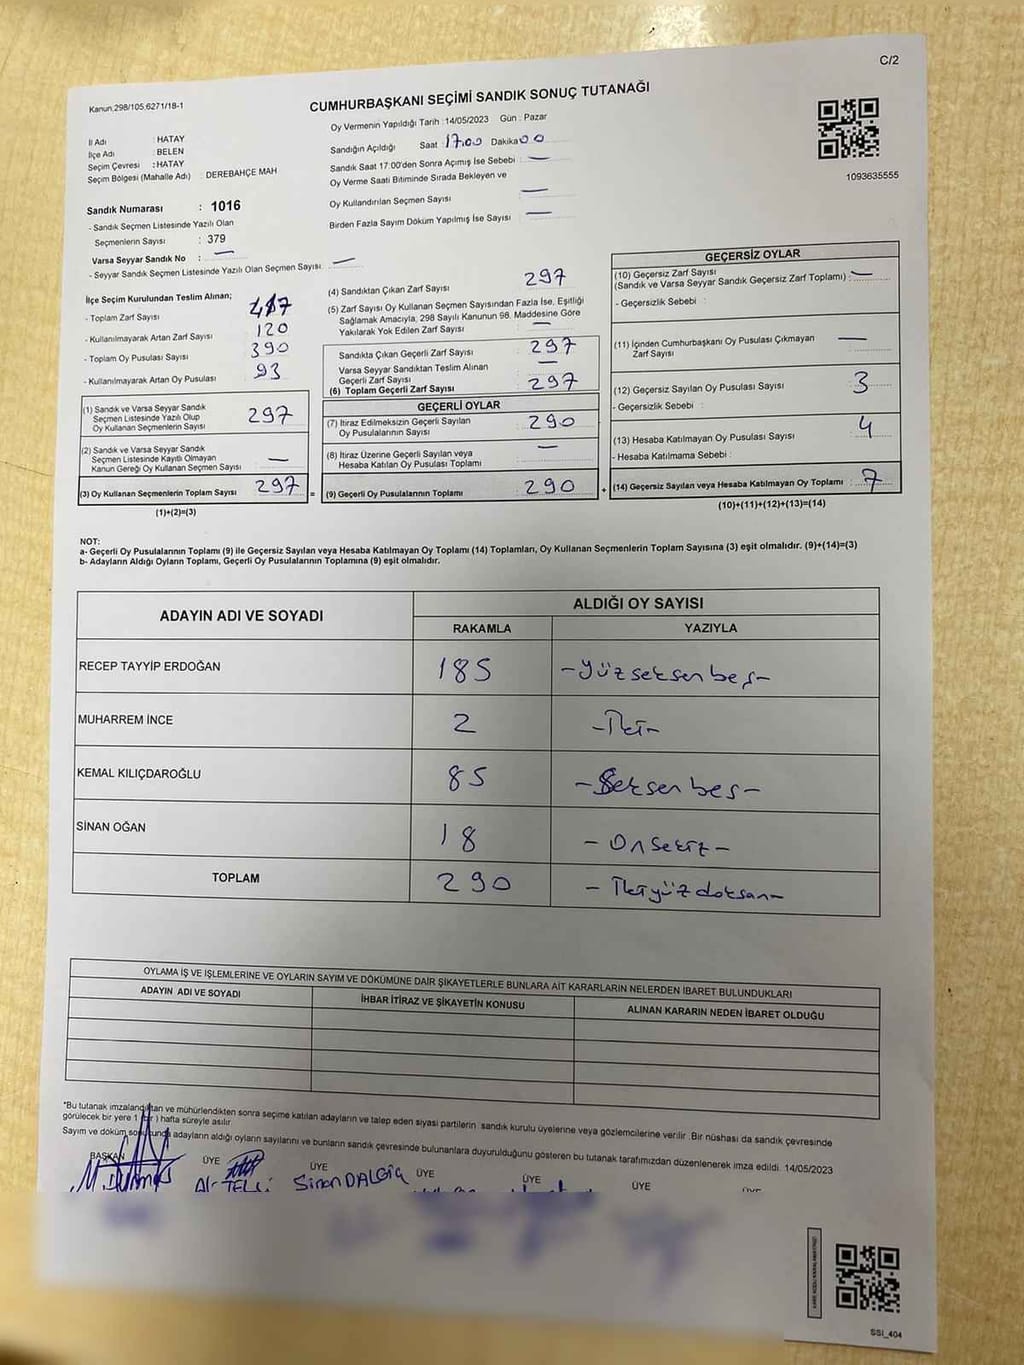 C/2
Kanun.298/105,6271/18-1
CUMHURBAŞKANI SEÇİMİ SANDIK SONUÇ TUTANAĞI
Oy Vermenin Yapıldığı Tarih :14/05/2023 Gün : Pazar
Sandığın Açıldığı Saat 17.00 Dakika 00
Sandık Saat 17:00'den Sonra Açımış İse Sebebi : —
Oy Verme Saati Bitiminde Sırada Bekleyen ve
Oy Kullandırılan Seçmen Sayısı —
Birden Fazla Sayım Döküm Yapılmış İse Sayısı —
İl Adı : HATAY
İlçe Adı : BELEN
Seçim Çevresi : HATAY
Seçim Bölgesi (Mahalle Adı) : DEREBAHÇE MAH
1093635555
Sandık Numarası : 1016
- Sandık Seçmen Listesinde Yazılı Olan
Seçmenlerin Sayısı : 379
Varsa Seyyar Sandık No : —
- Seyyar Sandık Seçmen Listesinde Yazılı Olan Seçmen Sayısı —
İlçe Seçim Kurulundan Teslim Alınan;
- Toplam Zarf Sayısı 417
- Kullanılmayarak Artan Zarf Sayısı 120
- Toplam Oy Pusulası Sayısı 390
- Kullanılmayarak Artan Oy Pusulası 93
(1) Sandık ve Varsa Seyyar Sandık
Seçmen Listesinde Yazılı Olup
Oy Kullanan Seçmenlerin Sayısı 297
(2) Sandık ve Varsa Seyyar Sandık
Seçmen Listesinde Kayıtlı Olmayan
Kanun Gereği Oy Kullanan Seçmen Sayısı —
(3) Oy Kullanan Seçmenlerin Toplam Sayısı 297 =
(1)+(2)=(3)
(4) Sandıktan Çıkan Zarf Sayısı 297
(5) Zarf Sayısı Oy Kullanan Seçmen Sayısından Fazla İse, Eşitliği
Sağlamak Amacıyla; 298 Sayılı Kanunun 98. Maddesine Göre
Yakılarak Yok Edilen Zarf Sayısı —
Sandıkta Çıkan Geçerli Zarf Sayısı 297
Varsa Seyyar Sandıktan Teslim Alınan
Geçerli Zarf Sayısı —
(6) Toplam Geçerli Zarf Sayısı 297
GEÇERLİ OYLAR
(7) İtiraz Edilmeksizin Geçerli Sayılan
Oy Pusulalarının Sayısı 290
(8) İtiraz Üzerine Geçerli Sayılan veya
Hesaba Katılan Oy Pusulası Toplamı —
(9) Geçerli Oy Pusulalarının Toplamı 290 +
GEÇERSİZ OYLAR
(10) Geçersiz Zarf Sayısı
(Sandık ve Varsa Seyyar Sandık Geçersiz Zarf Toplamı) : —
- Geçersizlik Sebebi :
(11) İçinden Cumhurbaşkanı Oy Pusulası Çıkmayan
Zarf Sayısı —
(12) Geçersiz Sayılan Oy Pusulası Sayısı 3
- Geçersizlik Sebebi :
(13) Hesaba Katılmayan Oy Pusulası Sayısı 4
- Hesaba Katılmama Sebebi :
(14) Geçersiz Sayılan veya Hesaba Katılmayan Oy Toplamı : 7
(10)+(11)+(12)+(13)=(14)
NOT:
a- Geçerli Oy Pusulalarının Toplamı (9) ile Geçersiz Sayılan veya Hesaba Katılmayan Oy Toplamı (14) Toplamları, Oy Kullanan Seçmenlerin Toplam Sayısına (3) eşit olmalıdır. (9)+(14)=(3)
b- Adayların Aldığı Oyların Toplamı, Geçerli Oy Pusulalarının Toplamına (9) eşit olmalıdır.
ADAYIN ADI VE SOYADI
ALDIĞI OY SAYISI
RAKAMLA YAZIYLA
RECEP TAYYİP ERDOĞAN 185 -Yüzseksenbeş-
MUHARREM İNCE 2 -İki-
KEMAL KILIÇDAROĞLU 85 -Seksenbeş-
SİNAN OĞAN 18 - Onsekiz -
TOPLAM 290 - İkiyüzdoksan-
OYLAMA İŞ VE İŞLEMLERİNE VE OYLARIN SAYIM VE DÖKÜMÜNE DAİR ŞİKAYETLERLE BUNLARA AİT KARARLARIN NELERDEN İBARET BULUNDUKLARI
ADAYIN ADI VE SOYADI İHBAR İTİRAZ VE ŞİKAYETİN KONUSU ALINAN KARARIN NEDEN İBARET OLDUĞU
*Bu tutanak imzalandıktan ve mühürlendikten sonra seçime katılan adayların ve talep eden siyasi partilerin sandık kurulu üyelerine veya gözlemcilerine verilir. Bir nüshası da sandık çevresinde
görülecek bir yere 1 (bir) hafta süreyle asılır.
Sayım ve döküm sonucunda adayların aldığı oyların sayılarını ve bunların sandık çevresinde bulunanlara duyurulduğunu gösteren bu tutanak tarafımızdan düzenlenerek imza edildi. 14/05/2023
BAŞKAN ÜYE ÜYE ÜYE ÜYE ÜYE
Sinan DALGIÇ
SSI_404